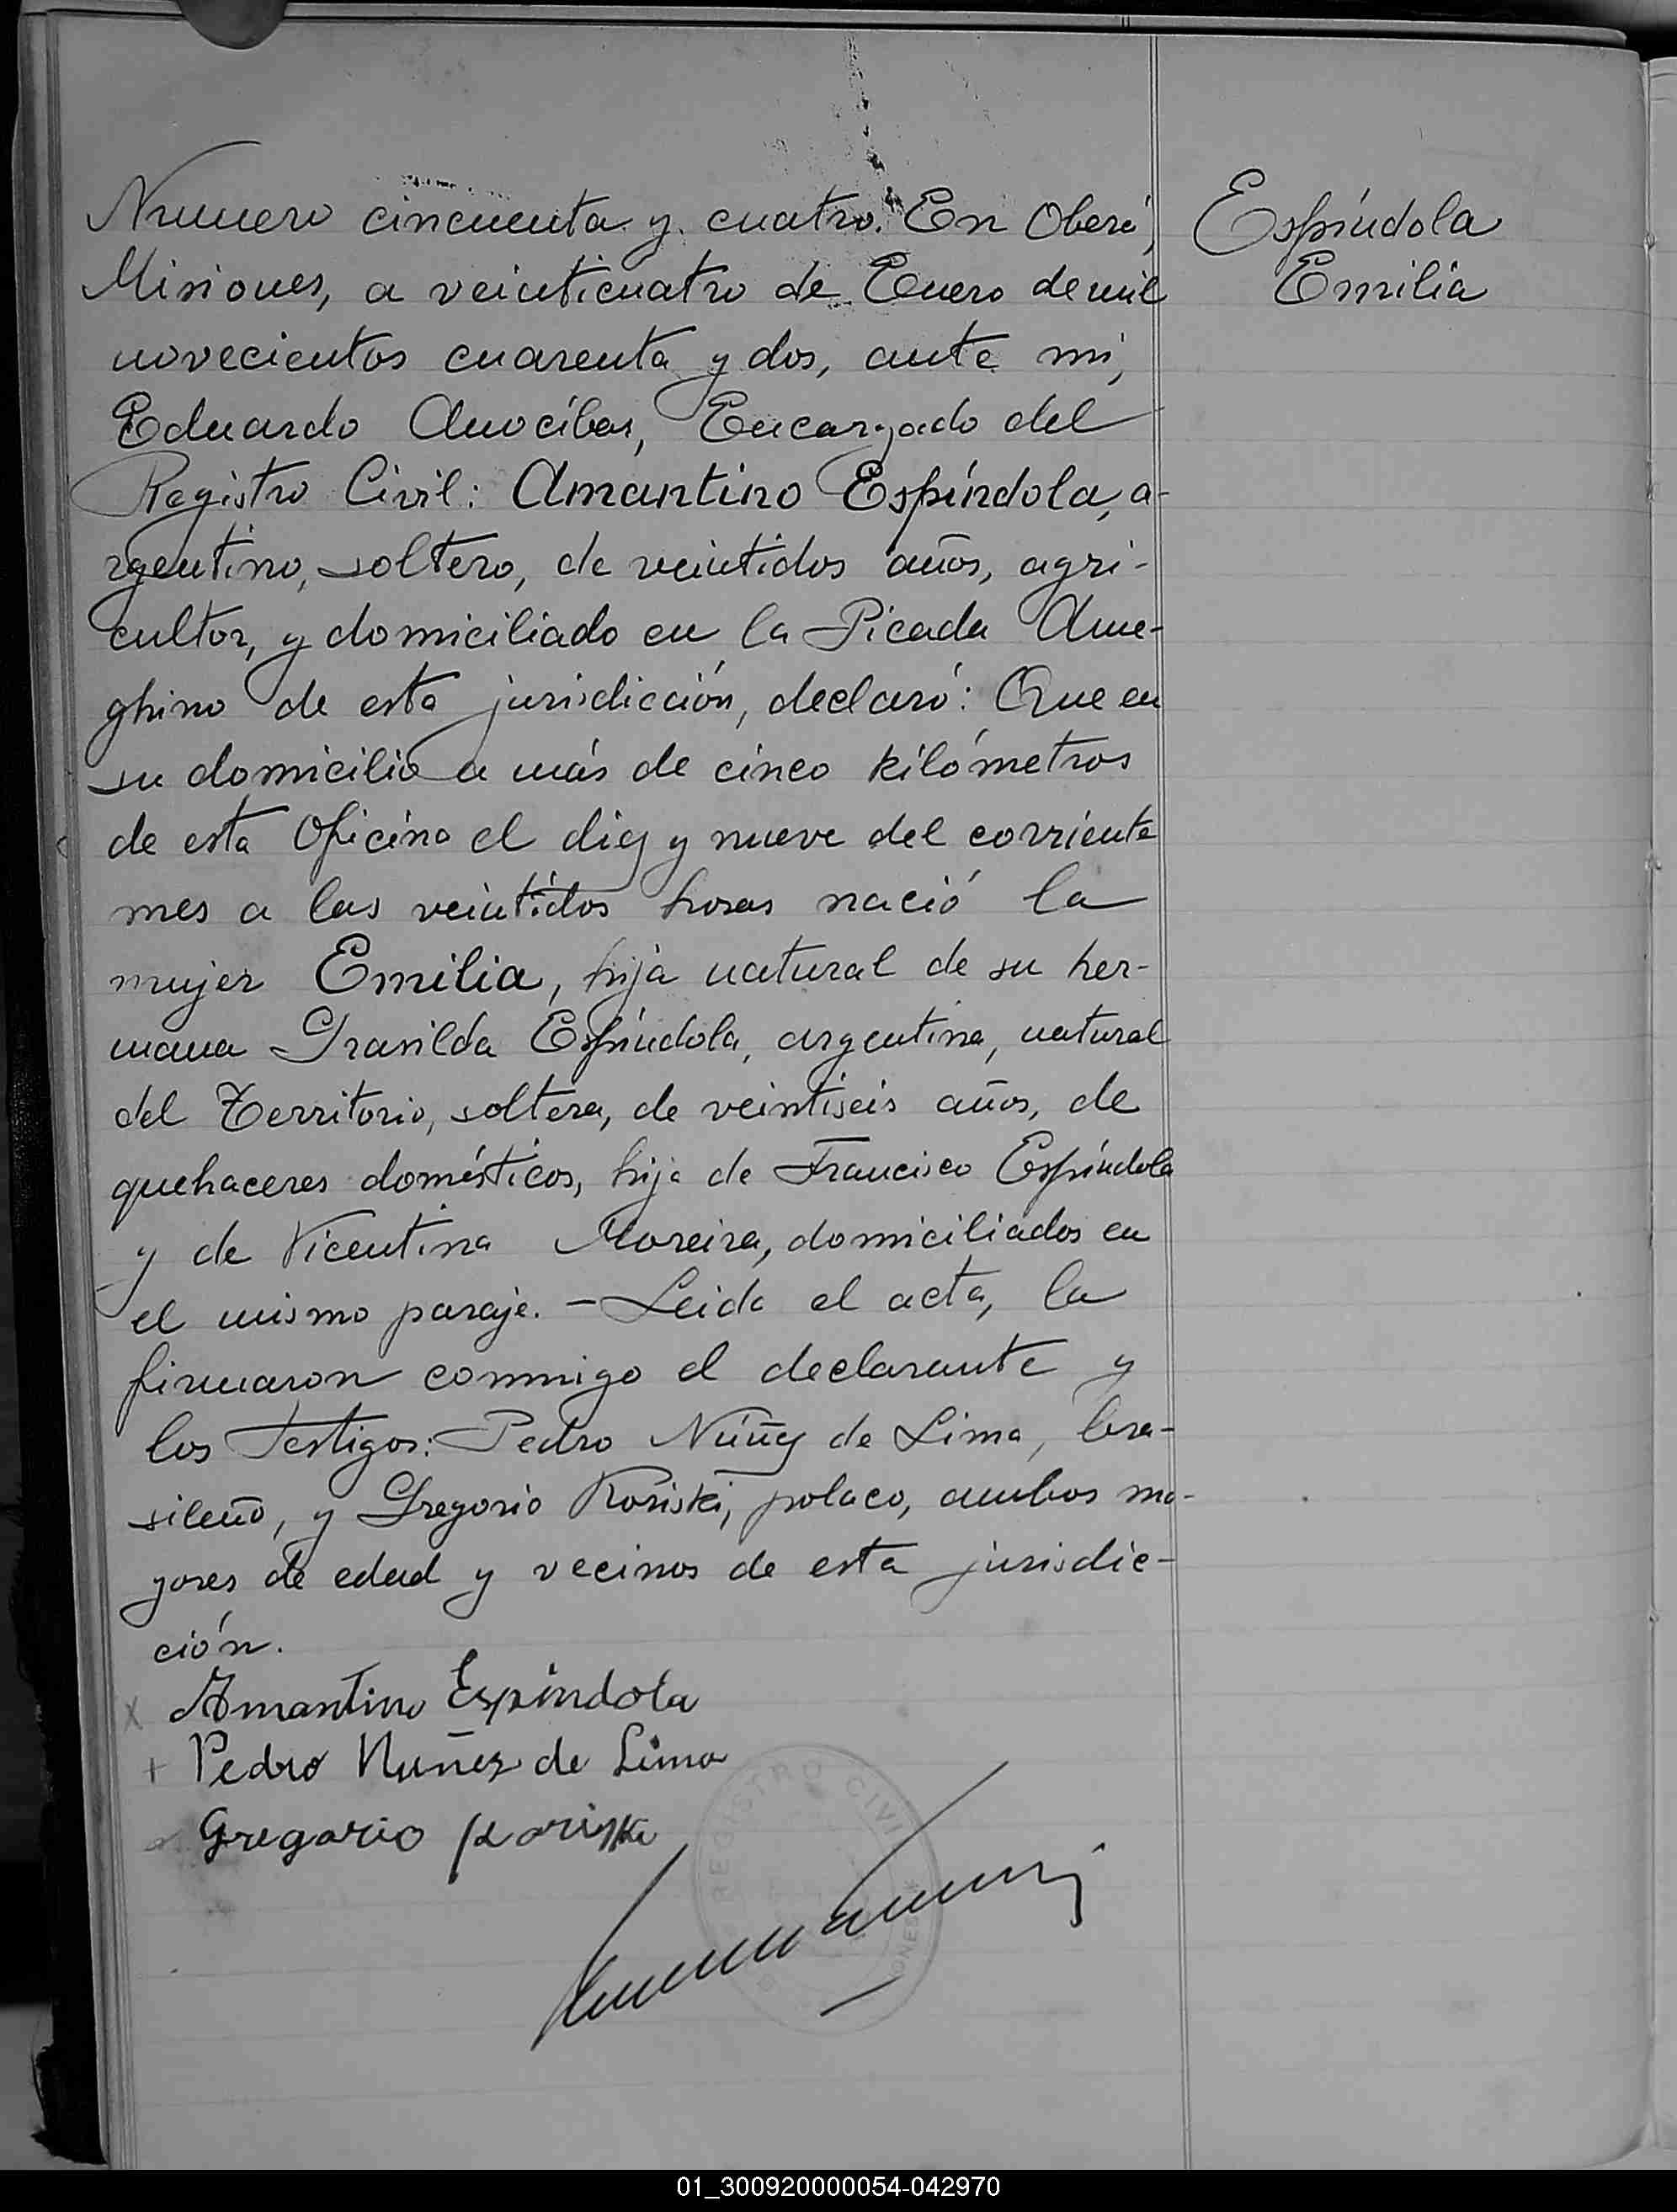 Numero cincuenta y cuatro. En Oberá,
Misiones, a veinticuatro de Enero de mil
novecientos cuarenta y dos, ante mi,
Eduardo Anocíbar, Encargado del
Registro Civil: Amantino Espíndola, a-
rgentino, soltero, de veintidos años, agri-
cultor, y domiciliado en la Picada Ame-
ghino de esta jurisdicción, declaró: Que en
su domicilio a más de cinco kilómetros
de esta Oficina el diez y nueve del corriente
mes a las veintidos horas nació la
mujer Emilia, hija natural de su her-
mana Grasilda Espíndola, argentina, natural
del Territorio, soltera, de veintiseis años, de
quehaceres domésticos, hija de Francisco Espíndola
y de Vicentina Moreira, domiciliados en
el mismo paraje. - Leida el acta, la
firmaron conmigo el declarante y
los testigos: Pedro Núñez de Lima, bra-
sileño, y Gregorio Koriski, polaco, ambos ma-
yores de edad y vecinos de esta jurisdic-
ción.
Amantino Espindola
Pedro Nuñez de Lima
Gregorio
REGISTRO CIVIL
Espíndola
Emilia
01_300920000054-042970